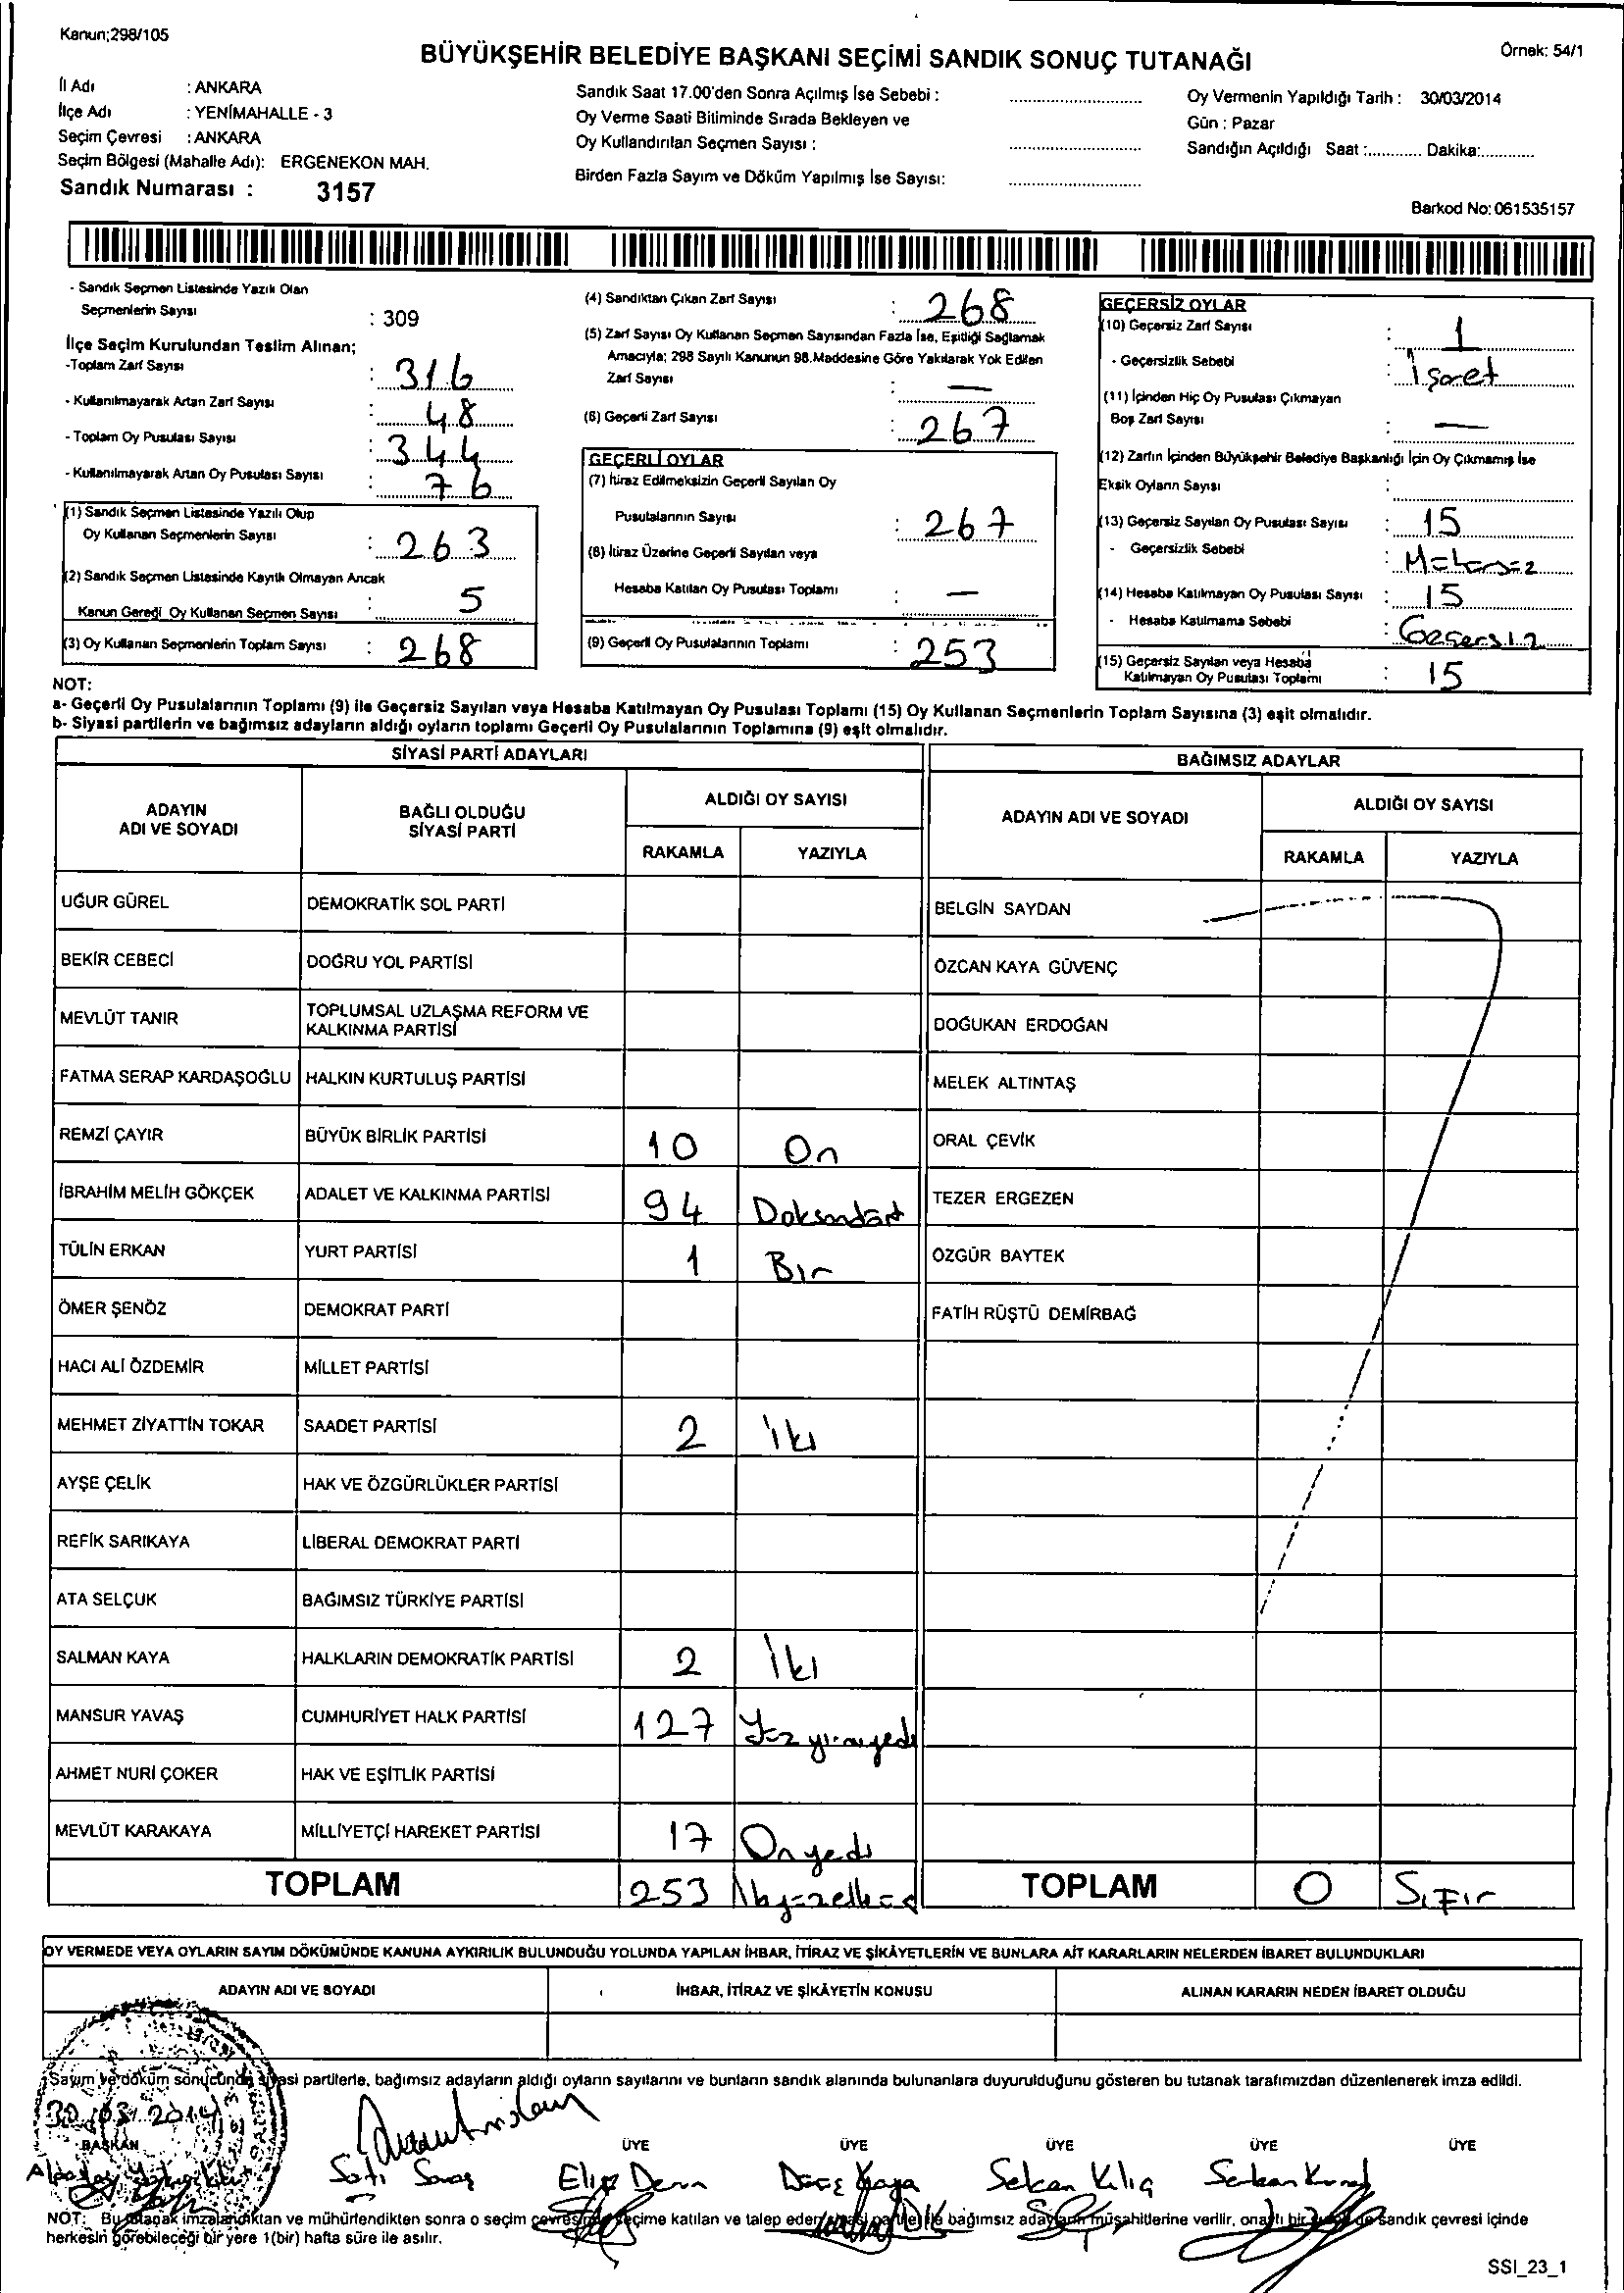 Kanun;298/105
BÜYÜKŞEHİR BELEDİYE BAŞKANI SEÇİMİ SANDIK SONUÇ TUTANAĞI
Örnek: 54/1
İl Adı : ANKARA
İlçe Adı : YENİMAHALLE - 3
Seçim Çevresi : ANKARA
Seçim Bölgesi (Mahalle Adı): ERGENEKON MAH.
Sandık Numarası : 3157
Sandık Saat 17.00'den Sonra Açılmış İse Sebebi :
Oy Verme Saati Bitiminde Sırada Bekleyen ve
Oy Kullandırılan Seçmen Sayısı :
Birden Fazla Sayım ve Döküm Yapılmış İse Sayısı:
Oy Vermenin Yapıldığı Tarih : 30/03/2014
Gün : Pazar
Sandığın Açıldığı Saat :............ Dakika:............
Barkod No: 061535157
- Sandık Seçmen Listesinde Yazılı Olan
Seçmenlerin Sayısı : 309
İlçe Seçim Kurulundan Teslim Alınan;
-Toplam Zarf Sayısı : 316
- Kullanılmayarak Artan Zarf Sayısı : 48
- Toplam Oy Pusulası Sayısı : 344
- Kullanılmayarak Artan Oy Pusulası Sayısı : 76
(1) Sandık Seçmen Listesinde Yazılı Olup
Oy Kullanan Seçmenlerin Sayısı : 263
(2) Sandık Seçmen Listesinde Kayıtlı Olmayan Ancak
Kanun Gereği Oy Kullanan Seçmen Sayısı : 5
(3) Oy Kullanan Seçmenlerin Toplam Sayısı : 268
(4) Sandıktan Çıkan Zarf Sayısı : 268
(5) Zarf Sayısı Oy Kullanan Seçmen Sayısından Fazla İse, Eşitliği Sağlamak
Amacıyla; 298 Sayılı Kanunun 98.Maddesine Göre Yakılarak Yok Edilen
Zarf Sayısı : —
(6) Geçerli Zarf Sayısı : 267
GEÇERLİ OYLAR
(7) İtiraz Edilmeksizin Geçerli Sayılan Oy
Pusulalarının Sayısı : 267
(8) İtiraz Üzerine Geçerli Sayılan veya
Hesaba Katılan Oy Pusulası Toplamı : —
(9) Geçerli Oy Pusulalarının Toplamı : 253
GEÇERSİZ OYLAR
(10) Geçersiz Zarf Sayısı : 1
- Geçersizlik Sebebi : İşaret
(11) İçinden Hiç Oy Pusulası Çıkmayan
Boş Zarf Sayısı : —
(12) Zarfın İçinden Büyükşehir Belediye Başkanlığı İçin Oy Çıkmamış İse
Eksik Oyların Sayısı :
(13) Geçersiz Sayılan Oy Pusulası Sayısı : 15
- Geçersizlik Sebebi : Mühürsüz
(14) Hesaba Katılmayan Oy Pusulası Sayısı : 15
- Hesaba Katılmama Sebebi : Geçersiz
(15) Geçersiz Sayılan veya Hesaba
Katılmayan Oy Pusulası Toplamı : 15
NOT:
a- Geçerli Oy Pusulalarının Toplamı (9) ile Geçersiz Sayılan veya Hesaba Katılmayan Oy Pusulası Toplamı (15) Oy Kullanan Seçmenlerin Toplam Sayısına (3) eşit olmalıdır.
b- Siyasi partilerin ve bağımsız adayların aldığı oyların toplamı Geçerli Oy Pusulalarının Toplamına (9) eşit olmalıdır.
SİYASİ PARTİ ADAYLARI
BAĞIMSIZ ADAYLAR
ADAYIN ADI VE SOYADI
BAĞLI OLDUĞU SİYASİ PARTİ
ALDIĞI OY SAYISI
RAKAMLA YAZIYLA
ADAYIN ADI VE SOYADI
ALDIĞI OY SAYISI
RAKAMLA YAZIYLA
UĞUR GÜREL DEMOKRATİK SOL PARTİ BELGİN SAYDAN
BEKİR CEBECİ DOĞRU YOL PARTİSİ ÖZCAN KAYA GÜVENÇ
MEVLÜT TANIR TOPLUMSAL UZLAŞMA REFORM VE KALKINMA PARTİSİ DOĞUKAN ERDOĞAN
FATMA SERAP KARDAŞOĞLU HALKIN KURTULUŞ PARTİSİ MELEK ALTINTAŞ
REMZİ ÇAYIR BÜYÜK BİRLİK PARTİSİ 10 On ORAL ÇEVİK
İBRAHİM MELİH GÖKÇEK ADALET VE KALKINMA PARTİSİ 94 Doksandört TEZER ERGEZEN
TÜLİN ERKAN YURT PARTİSİ 1 Bir ÖZGÜR BAYTEK
ÖMER ŞENÖZ DEMOKRAT PARTİ FATİH RÜŞTÜ DEMİRBAĞ
HACI ALİ ÖZDEMİR MİLLET PARTİSİ
MEHMET ZİYATTİN TOKAR SAADET PARTİSİ 2 İki
AYŞE ÇELİK HAK VE ÖZGÜRLÜKLER PARTİSİ
REFİK SARIKAYA LİBERAL DEMOKRAT PARTİ
ATA SELÇUK BAĞIMSIZ TÜRKİYE PARTİSİ
SALMAN KAYA HALKLARIN DEMOKRATİK PARTİSİ 2 İki
MANSUR YAVAŞ CUMHURİYET HALK PARTİSİ 127 Yüzyirmiyedi
AHMET NURİ ÇOKER HAK VE EŞİTLİK PARTİSİ
MEVLÜT KARAKAYA MİLLİYETÇİ HAREKET PARTİSİ 17 Onyedi
TOPLAM 253 İkiyüzelliüç TOPLAM 0 Sıfır
OY VERMEDE VEYA OYLARIN SAYIM DÖKÜMÜNDE KANUNA AYKIRILIK BULUNDUĞU YOLUNDA YAPILAN İHBAR, İTİRAZ VE ŞİKÂYETLERİN VE BUNLARA AİT KARARLARIN NELERDEN İBARET BULUNDUKLARI
ADAYIN ADI VE SOYADI İHBAR, İTİRAZ VE ŞİKÂYETİN KONUSU ALINAN KARARIN NEDEN İBARET OLDUĞU
Sayım ve döküm sonucunda siyasi partilerle, bağımsız adayların aldığı oyların sayılarını ve bunların sandık alanında bulunanlara duyurulduğunu gösteren bu tutanak tarafımızdan düzenlenerek imza edildi.
30/03/2014
BAŞKAN ÜYE ÜYE ÜYE ÜYE ÜYE
Satı Savaş Elif Derin Kaya Selcan Kılıç Serkan
NOT: Bu tutanak imzalandıktan ve mühürlendikten sonra o seçim çevresinde seçime katılan ve talep eden siyasi partiler ile bağımsız adayların müşahitlerine verilir, onaylı bir sureti de sandık çevresi içinde
herkesin görebileceği bir yere 1(bir) hafta süre ile asılır.
SSI_23_1